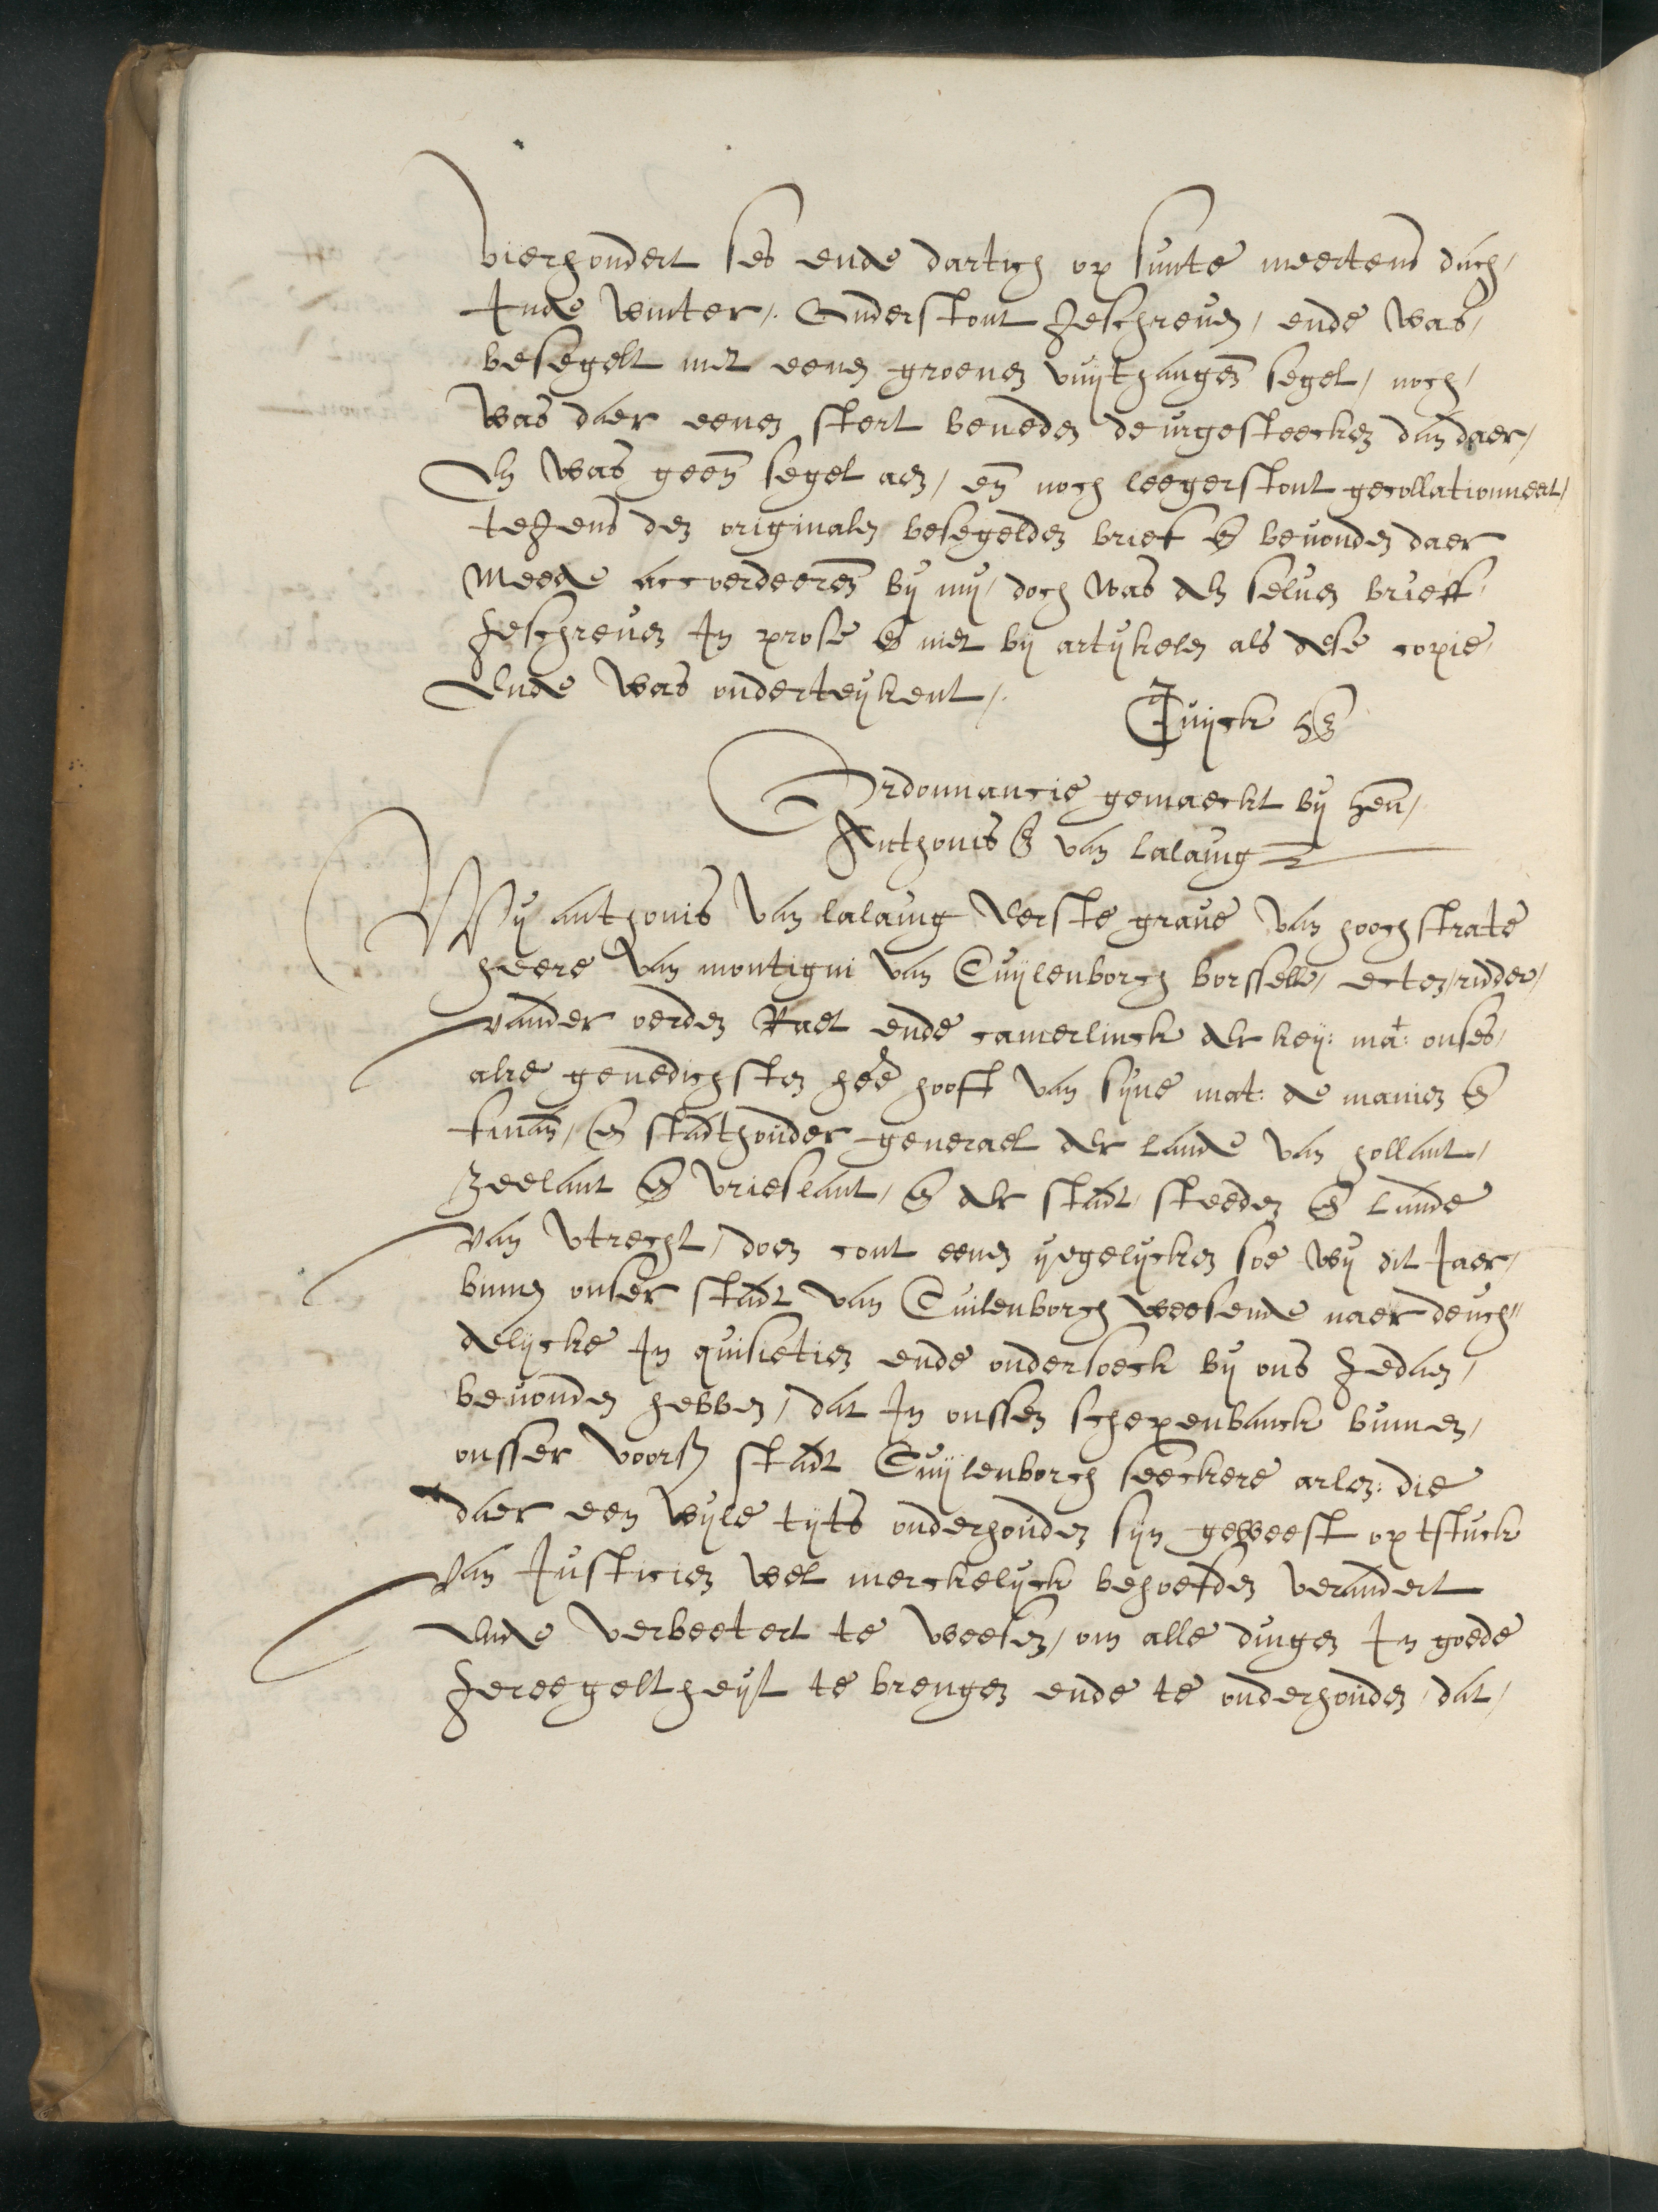 vierhondert ses ende dartich op sunte meertens dach,
Inde winter,. Onderstont Jeschreven, ende was,
besegelt met eenen groenen vuythangen segel, noch,
was daer eenen stert beneden deurgesteecken dan daer,
En was geen segel aen, en noch leegerstont gecollationneert,
teJens den originalen besegelden brief en bevonden daer
meede accordeeren by my, doch was den selven brieff
Jeschreven In prose en niet by artykelen als dese copie,
Ende was onderteykent,.
Cuyck
Ordonnancie gemaeckt by hen,
Anthonis van lalaing
Wy anthonis van lalaing Eerste grave van hoochstrate
heere van montigni van Cuylenborch borsselle, ecten, ridder,
vander oerden Raet ende camerlinck der key: mat: onses,
alre genedichsten hee hooft van syne mat: de manien en
finan, en stadthouder generael der lande van hollant,
Zeelant en vrieslant, en der stadt, steeden en lande
van vtrecht, doen cont eenen yegelycken soe wy dit Jaer,
binnen onser stadt van Cuilenborch weesende naer deuch"
delycke In quisietien ende ondersoeck by ons Jedaen,
bevonden hebben, dat In onssen schepenbanck binnen,
onsser voors stadt Cuylenborch seeckere arlen: die
daer een wyle tyts onderhouden syn geweest opt stuck
van Justicien wel merckelyck behoefden verandert
Ende verbeetert te weesen, om alle dingen In goede
Jereegeltheyt te brengen ende te onderhouden, dat,